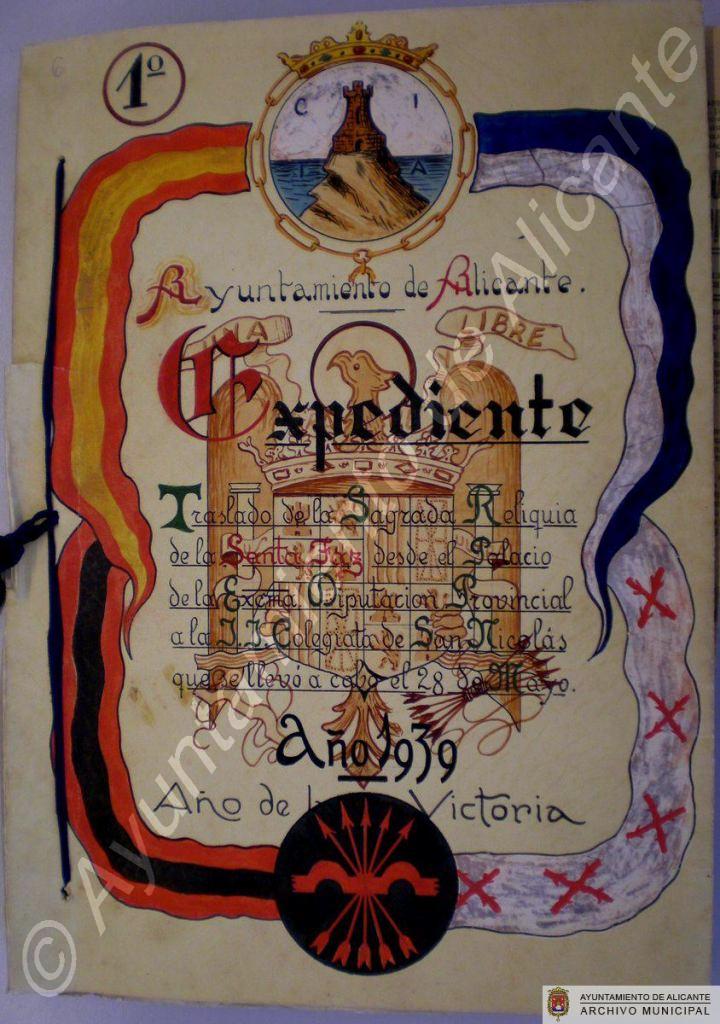 6
1º
C I
I A
Ayuntamiento de Alicante.
UNA LIBRE
Expediente
Traslado de la Sagrada Reliquia
de la Santa Faz desde el Palacio
de la Excma Diputacion Provincial
a la I. I. Colegiata de San Nicolás
que se llevó a cabo el 28 de Mayo.
Año 1939
Año de la Victoria
© Ayuntamiento de Alicante
AYUNTAMIENTO DE ALICANTE
ARCHIVO MUNICIPAL